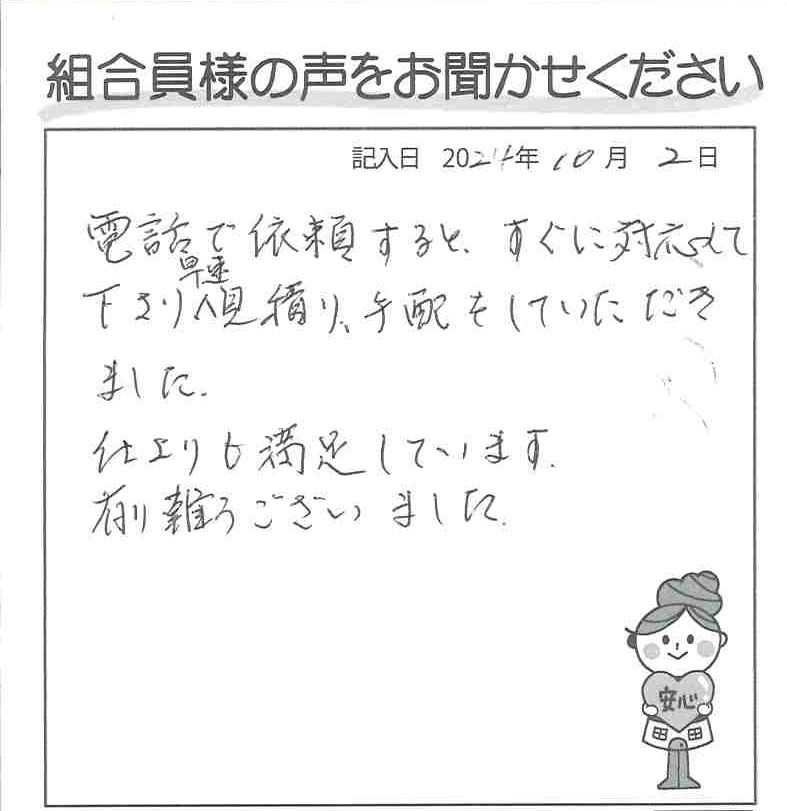 組合員様の声をお聞かせください
記入日 2024年 10月 2日
電話で依頼すると、すぐに対応して
下さり早速見積り、手配をしていただき
ました.
仕上りも満足しています.
有り難うございました.
安心